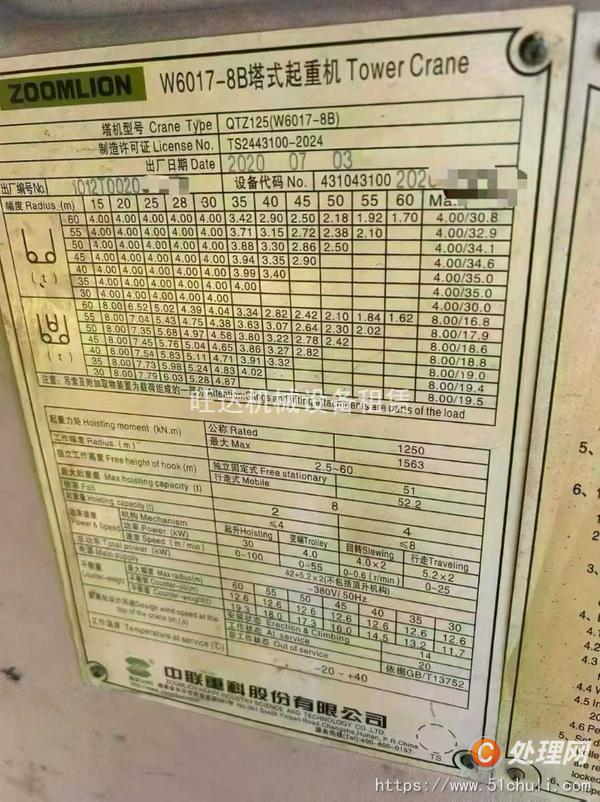 ZOOMLION W6017-8B塔式起重机 Tower Crane
塔机型号 Crane Type QTZ125(W6017-8B)
制造许可证 License No. TS2443100-2024
出厂日期 Date 2020 07 03
出厂编号No. 1012T0020 设备代码 No. 431043100 202
幅度 Radius (m) 15 20 25 28 30 35 40 45 50 55 60 Ma
60 4.00 4.00 4.00 4.00 4.00 3.42 2.90 2.50 2.18 1.92 1.70 4.00/30.8
55 4.00 4.00 4.00 4.00 4.00 3.71 3.15 2.72 2.38 2.10 4.00/32.9
50 4.00 4.00 4.00 4.00 4.00 3.88 3.30 2.86 2.50 4.00/34.1
45 4.00 4.00 4.00 4.00 4.00 3.94 3.35 2.90 4.00/34.6
40 4.00 4.00 4.00 4.00 4.00 3.99 3.40 4.00/35.0
35 4.00 4.00 4.00 4.00 4.00 4.00 4.00/35.0
30 4.00 4.00 4.00 4.00 4.00 4.00/30.0
(t)
60 8.00 6.52 5.02 4.39 4.04 3.34 2.82 2.42 2.10 1.84 1.62 8.00/16.8
55 8.00 7.04 5.43 4.75 4.38 3.63 3.07 2.64 2.30 2.02 8.00/17.9
50 8.00 7.35 5.68 4.97 4.58 3.80 3.22 2.78 2.42 8.00/18.6
45 8.00 7.45 5.76 5.04 4.65 3.86 3.27 2.82 8.00/18.8
40 8.00 7.54 5.83 5.11 4.71 3.91 3.32 8.00/19.0
35 8.00 7.73 5.98 5.24 4.83 8.00/19.4
30 8.00 7.79 6.03 5.28 4.87 8.00/19.5
(t)
注意：吊索及附加取物装置为载荷组成的一部 Attention Slings and lifting attachments are parts of the load
旺达机械设备租赁
起重力矩 Hoisting moment (kN.m) 公称 Rated 1250
最大 Max 1563
工作幅度 Radius. (m) 2.5~60
独立工作高度 Free height of hook (m) 独立固定式 Free stationary 51
行走式 Mobile 52.2
最大起重量 Max hoisting capacity (t) 8
倍率 Fall 2 4
起重量 Hoisting capacity (t) ≤4 ≤8
功率速度 Power & Speed 机构 Mechanism 起升Hoisting 变幅Trolley 回转Slewing 行走Traveling
功率 Power (kW) 30 4.0 4.0×2 5.2×2
速度 Speed (m/min) 0~100 0~55 0~0.6 (r/min) 0~25
总功率 Total power (kW) 42+5.2×2(不包括顶升机构)
电源 Main supply ~380V/50Hz
平衡重 Counter-weight 最大幅度 Max radius(m) 60 55 50 45 40 35 30
12.6 12.6 12.6 12.6 12.6 12.6 12.6
平衡重 Counter-weight(t) 19.3 18.0 17.3 16.0 14.5 13.2 11.7
Design wind speed at the top of the crane (m/s) 安装状态 Erection & Climbing 14
工作状态 At service 20
非工作状态 Out of service 依据GB/T13752
工作温度 Temperature at service (℃) -20~+40
中联重科股份有限公司
ZOOMLION HEAVY INDUSTRY SCIENCE AND TECHNOLOGY CO.,LTD.
No.361 South Yinpen Road,Changsha,Hunan, P.R.China
服务热线(Tel):400-800-0157
TS
5、
6、
4.
4.4
4.5
4.6
5.
6.
C 处理网
https://www.51chuli.com